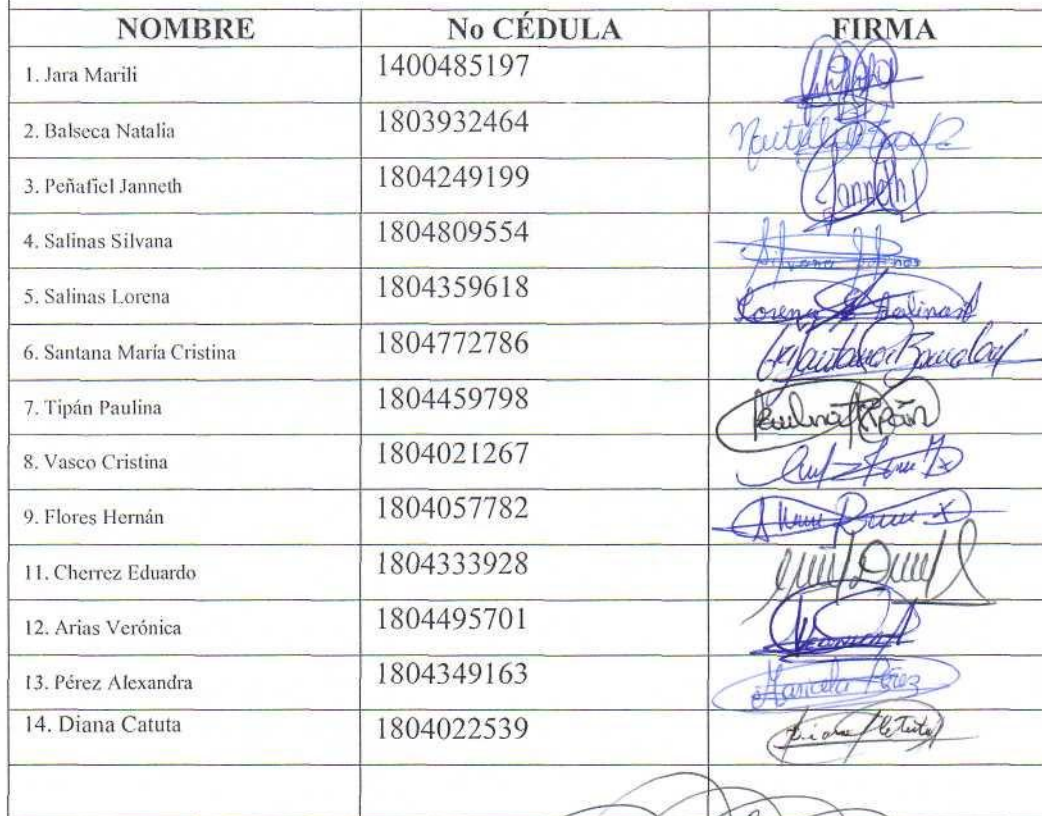 NOMBRE No CÉDULA FIRMA
1. Jara Marili 1400485197
2. Balseca Natalia 1803932464
3. Peñafiel Janneth 1804249199 Janneth
4. Salinas Silvana 1804809554 Silvana Salinas
5. Salinas Lorena 1804359618 Lorena Salinas
6. Santana María Cristina 1804772786
7. Tipán Paulina 1804459798 Paulina Tipán
8. Vasco Cristina 1804021267
9. Flores Hernán 1804057782
11. Cherrez Eduardo 1804333928
12. Arias Verónica 1804495701
13. Pérez Alexandra 1804349163 Marcela Pérez
14. Diana Catuta 1804022539